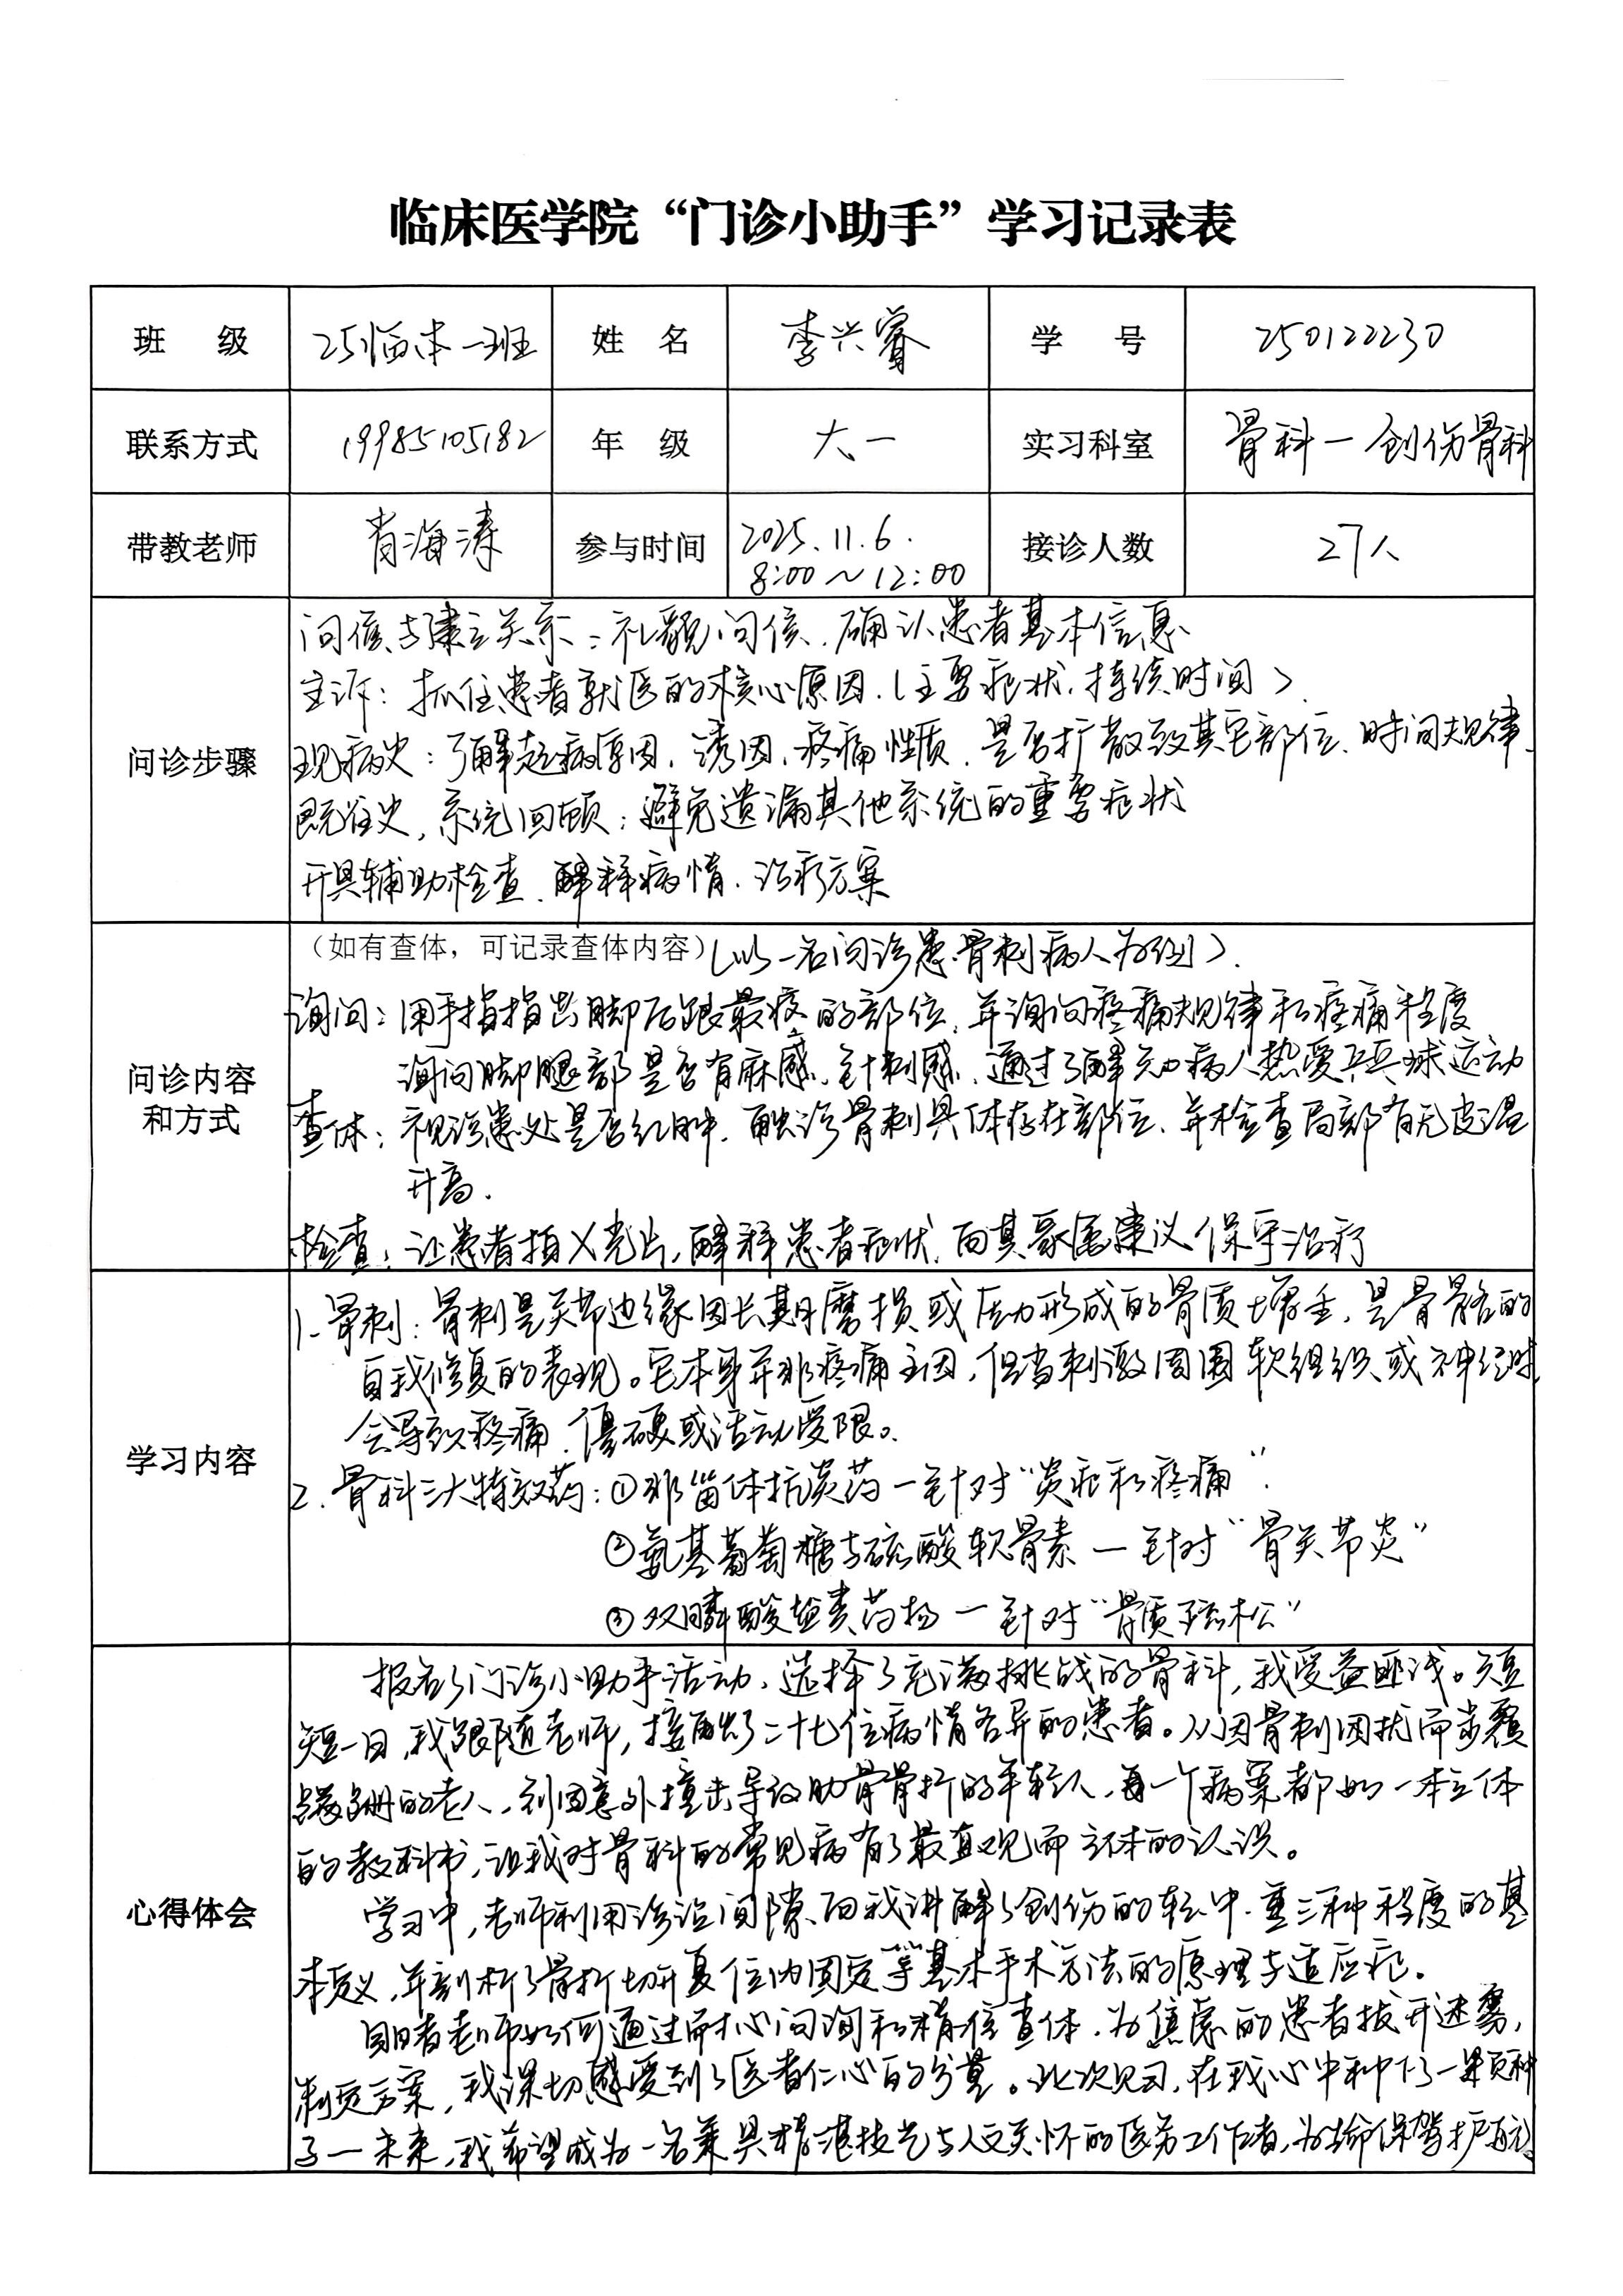 临床医学院“门诊小助手”学习记录表
班 级 25临本一班 姓 名 李兴睿 学 号 250122230
联系方式 19985105182 年 级 大一 实习科室 骨科一创伤骨科
带教老师 肖海涛 参与时间 2025.11.6. 8:00～12:00 接诊人数 27人
问诊步骤
问候与建立关系：礼貌问候、确认患者基本信息
主诉：抓住患者就医的核心原因.(主要症状.持续时间)
现病史：了解起病原因.诱因.疼痛性质.是否扩散致其它部位、时间规律.
既往史,系统回顾：避免遗漏其他系统的重要症状
开具辅助检查.解释病情.治疗方案
问诊内容和方式
（如有查体，可记录查体内容）(以一名问诊患骨刺病人为例).
询问：用手指指出脚后跟最疼的部位,并询问疼痛规律和疼痛程度
询问脚腿部是否有麻感、针刺感.通过了解知病人热爱乒乓球运动
查体：视诊患处是否红肿.触诊骨刺具体存在部位、并检查局部有无皮温
升高.
检查：让患者拍X光片,解释患者症状.向其家属建议保守治疗
学习内容
1.骨刺：骨刺是关节边缘因长期磨损或压力形成的骨质增生,是骨骼的
自我修复的表现。它本身并非疼痛主因,但当刺激周围软组织或神经时
会导致疼痛.僵硬或活动受限。
2.骨科三大特效药：①非甾体抗炎药一针对“炎症和疼痛”.
②氨基葡萄糖与硫酸软骨素一针对“骨关节炎”
③双膦酸盐类药物一针对“骨质疏松”
心得体会
报名了门诊小助手活动、选择了充满挑战的骨科,我受益匪浅。短
短一日,我跟随老师,接触了二十七位病情各异的患者。从因骨刺困扰而步履
蹒跚的老人,到因意外撞击导致肋骨骨折的年轻人,每一个病案都如一本立体
的教科书,让我对骨科的常见病有了最直观而立体的认识。
学习中,老师利用诊治间隙向我讲解了创伤的轻.中.重三种程度的基
本定义,并剖析了骨折切开复位内固定等基本手术方法的原理与适应症。
目睹老师如何通过耐心问询和精细查体.为焦虑的患者拨开迷雾,
制定方案,我深切感受到了医者仁心的分量。此次见习,在我心中种下了一颗种
子一未来,我希望成为一名兼具精湛技艺与人文关怀的医务工作者,为生命保驾护航。